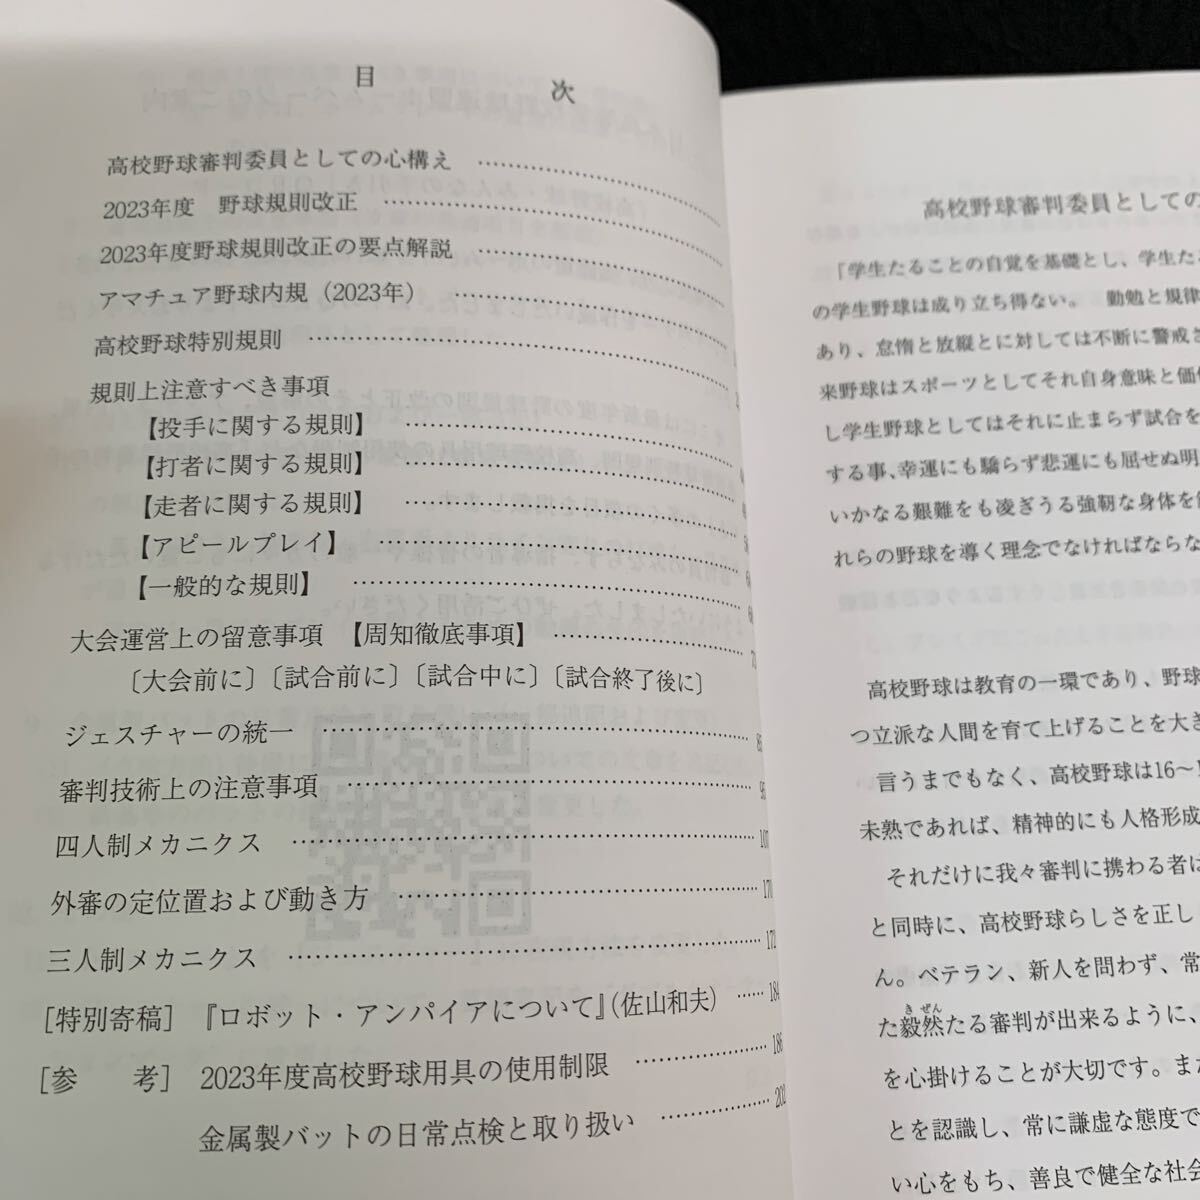 目 次
高校野球審判委員としての心構え
2023年度 野球規則改正
2023年度野球規則改正の要点解説
アマチュア野球内規（2023年）
高校野球特別規則
規則上注意すべき事項
【投手に関する規則】
【打者に関する規則】
【走者に関する規則】
【アピールプレイ】
【一般的な規則】
大会運営上の留意事項 【周知徹底事項】
〔大会前に〕〔試合前に〕〔試合中に〕〔試合終了後に〕
ジェスチャーの統一
審判技術上の注意事項
四人制メカニクス 107
外審の定位置および動き方 170
三人制メカニクス 172
［特別寄稿］『ロボット・アンパイアについて』（佐山和夫） 184
［参 考］ 2023年度高校野球用具の使用制限 186
金属製バットの日常点検と取り扱い 202
高校野球審判委員としての
「学生たることの自覚を基礎とし、学生た
の学生野球は成り立ち得ない。 勤勉と規律
あり、怠惰と放縦とに対しては不断に警戒
来野球はスポーツとしてそれ自身意味と価
し学生野球としてはそれに止まらず試合を
する事、幸運にも驕らず悲運にも屈せぬ明
いかなる艱難をも凌ぎうる強靭な身体を
れらの野球を導く理念でなければならな
高校野球は教育の一環であり、野球
つ立派な人間を育て上げることを大き
言うまでもなく、高校野球は16～1
未熟であれば、精神的にも人格形成
それだけに我々審判に携わる者は
と同時に、高校野球らしさを正し
ん。ベテラン、新人を問わず、常
た毅然たる審判が出来るように、
を心掛けることが大切です。また
とを認識し、常に謙虚な態度で
い心をもち、善良で健全な社会